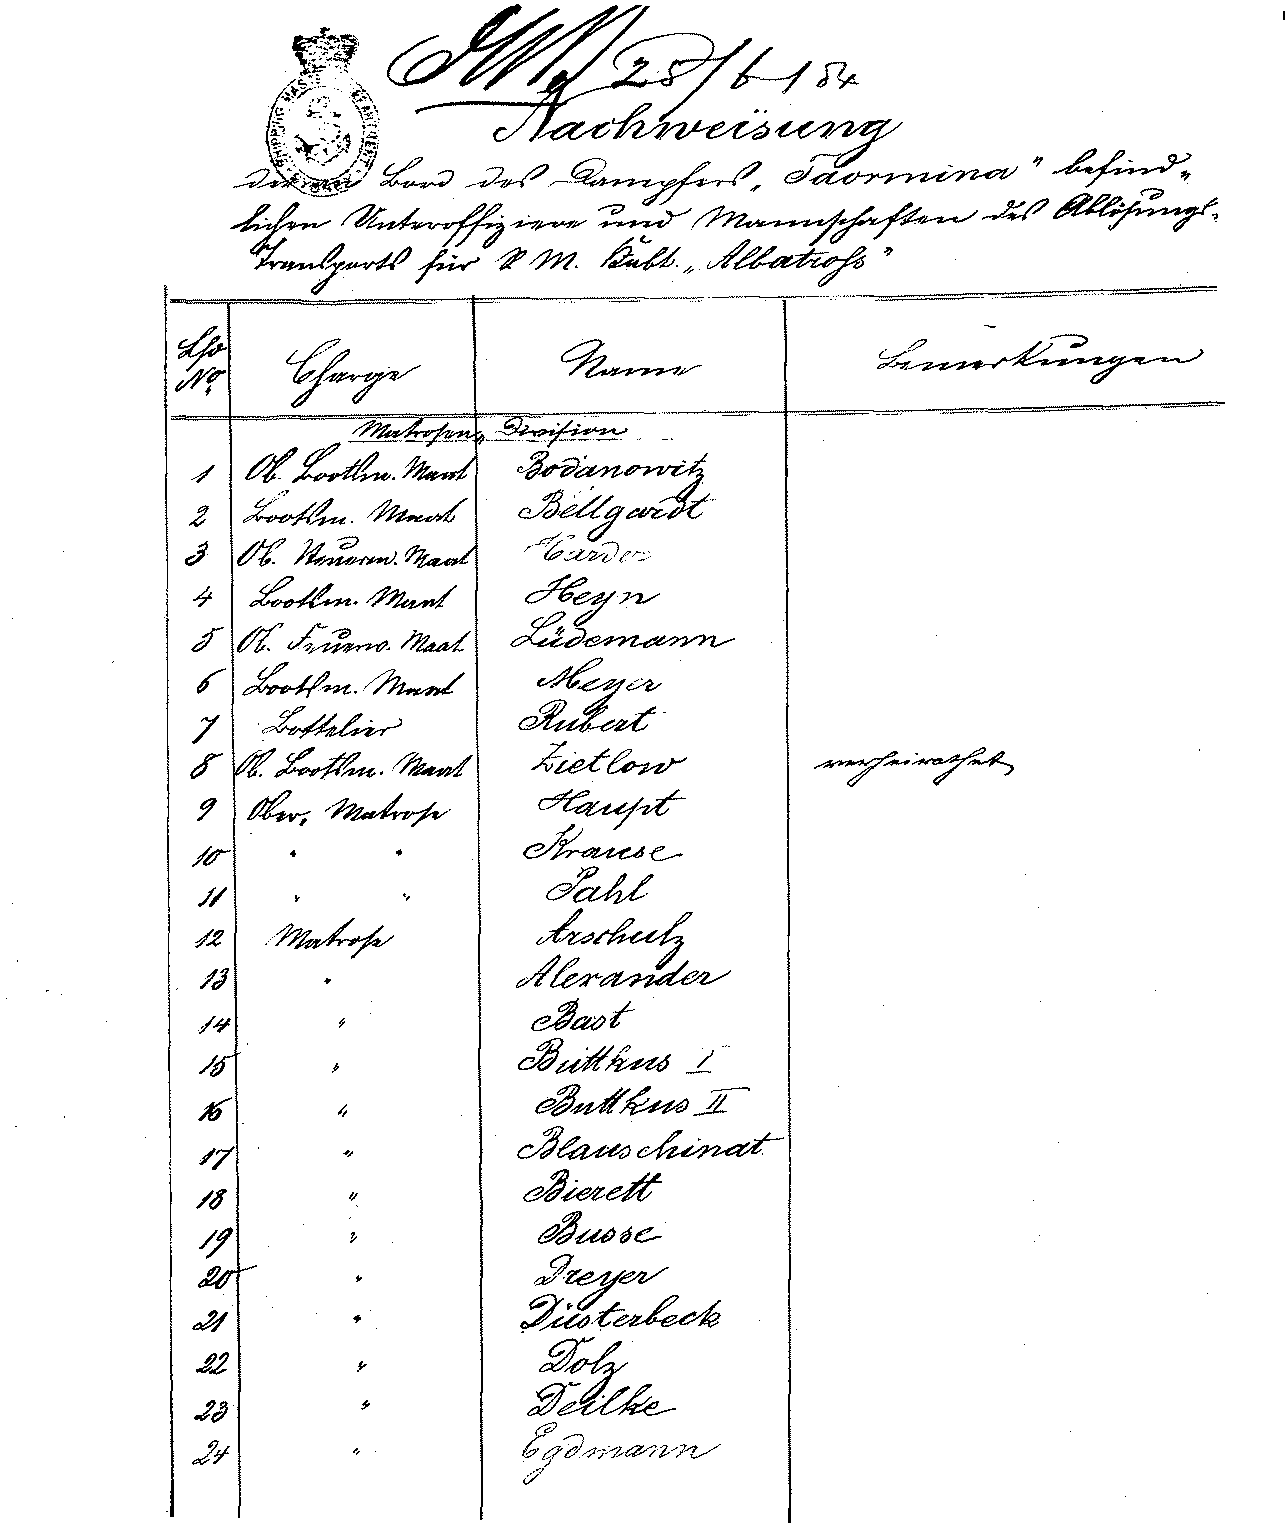 28/6/84
Nachweisung
der an Bord des Dampfers „Taormina" befind-
lichen Unteroffiziere und Mannschaften des Ablösungs-
Transports für S. M. Knbt. „Albatross"
Lfd No. Charge Name Bemerkungen
Matrosen-Division
1 Ob. Bootsm. Maat Bodanowitz
2 Bootsm. Maat Bellgardt
3 Ob. Steuerm. Maat Harder
4 Bootsm. Maat Heyn
5 Ob. Feuerw. Maat Lüdemann
6 Bootsm. Maat Meyer
7 Bottelier Rubert
8 Ob. Bootsm. Maat Zietlow verheirathet
9 Ober-Matrose Haupt
10 " " Krause
11 " " Pahl
12 Matrose Arschulz
13 " Alexander
14 " Bast
15 " Buttkus I
16 " Buttkus II
17 " Blauschinat
18 " Bierett
19 " Busse
20 " Dreyer
21 " Düsterbeck
22 " Dolz
23 " Deilke
24 " Egdmann